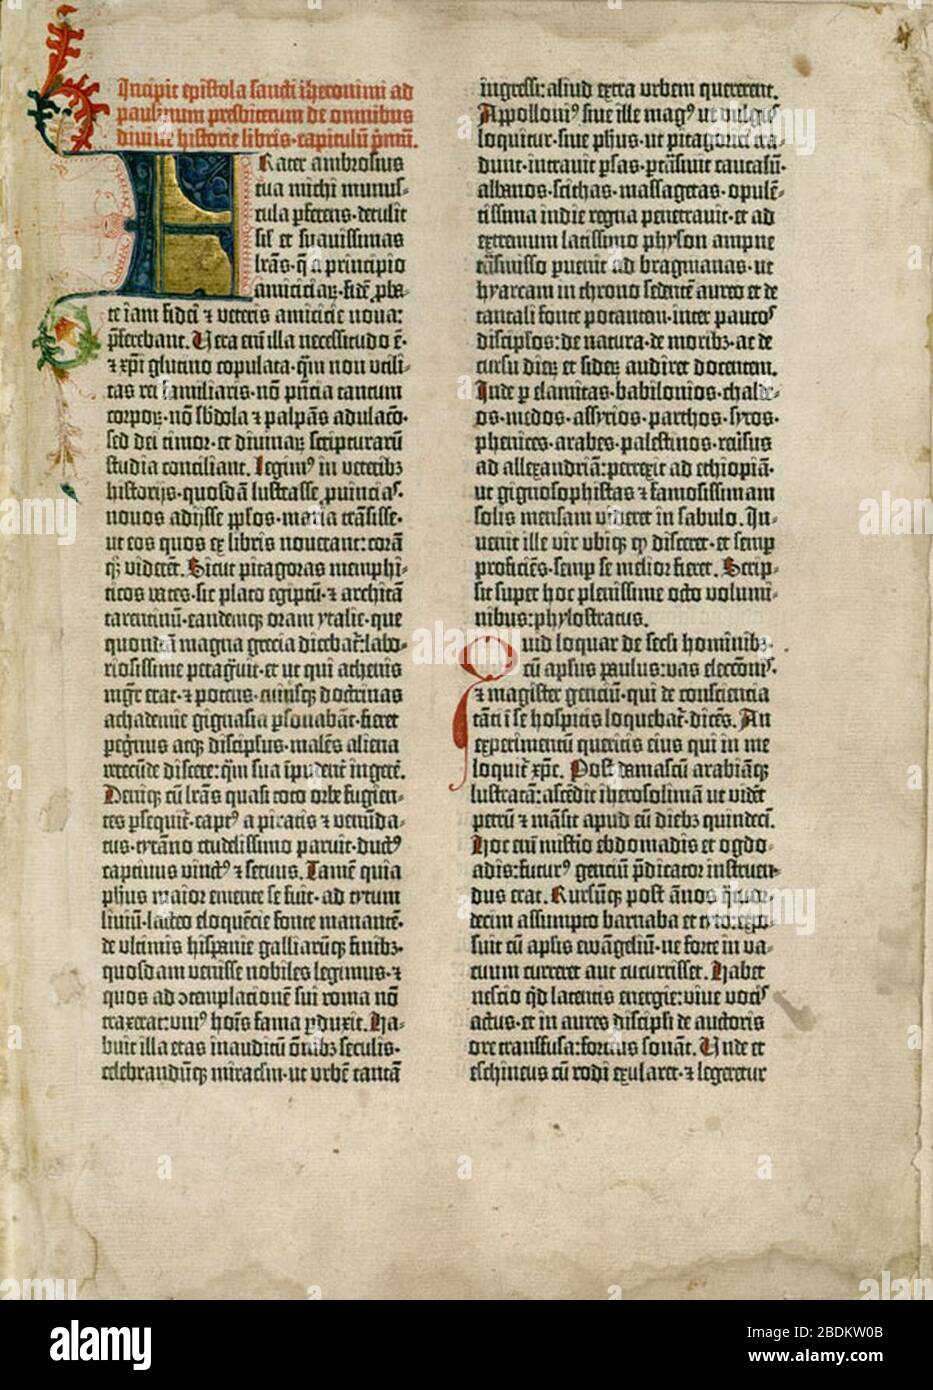 Incipit epistola sancti iheronimi ad
paulinum presbiterum de omnibus
divine historie libris· capitulū p̄mū.
Frater ambrosius
tua michi munus-
cula pferens· detulit
sil' et suavissimas
lrās· q̄ a principio
amiciciaꝝ· fidē ꝓba-
te iam fidei ⁊ veteris amicicie nova:
p̄ferebant. Vera eni illa necessitudo ē·
⁊ xp̄i glutino copulata· qm̄ non utili-
tas rei familiaris· nō pn̄cia tantum
corpoꝝ· nō sbdola ⁊ palpās adulacō·
sed dei timor· et divinaꝝ scripturarū
studia conciliant. Legim⁹ in veterib⁊
historijs· quosdā lustrasse ꝓvincias·
novos adijsse pplos· maria trāsisse·
ut eos quos ex libris noverant: corā
q̄⁊ viderēt. Sicut pitagoras memphi-
ticos vates· sic plato egiptū· ⁊ architā
tarentinū· eandemqꝫ oram ytalie· que
quondā magna grecia dicebat̄: labo-
riosissime peragvit· et ut qui athenis
mgr̄ erat· ⁊ potens· cuiusqꝫ doctrinas
achademie gignasia psonabāt· fieret
pegrinus atqꝫ discipulus· malēs aliena
verecūde discere: qm̄ sua īpudent̄ ingerē.
Deniqꝫ cū lrās quasi toto orbe fugien-
tes psequit̄· capt⁹ a piratis ⁊ venūda-
tus· tyrāno crudelissimo paruit· duct⁹
captivus vinct⁹ ⁊ servus. Tamē quia
phus maior emente se fuit· ad tytum
liviū· lacteo eloquēcie fonte manantē·
de ultimis hispanie galliarūqꝫ finib⁊·
quosdam venisse nobiles legimus· ⁊
quos ad ↄtemplacionē sui roma nō
traxerat: uni⁹ hoīs fama pduxit. Ha-
buit illa etas inauditū oīnib⁊ seculis·
celebrandūqꝫ miraclm· ut urbē tantā
ingressi: aliud extra urbem quererent.
Appolloni⁹ sive ille mag⁹ ut vulgus
loquitur· sive phus· ut pitagorici tra-
dunt· intravit psas· ptrāsivit caucasū·
albanos· scithas· massagetas· opulē-
tissima indie regna penetravit· et ad
extremum latissimo physon ampne
trāsmisso pvenit ad bragmanas· ut
hyarcam in throno sedentē aureo et de
tantali fonte potantem· inter paucos
discipulos: de natura· de moribz ac de
cursu dieꝝ et sideꝝ audiret docentem.
Inde p elamitas· babilonios· chalde-
os· medos· assyrios· parthos· syros·
phenices· arabes· palestinos· rev̄sus
ad allexandriā: perrexit ad ethiopiā·
ut gignosophistas ⁊ famosissimam
solis mensam videret in sabulo. In-
venit ille vir ubiqꝫ qd disceret· et semp
proficiēs· semp se melior fieret. Scrip-
sit super hoc plenissime octo volumi-
nibus: phylostratus.
Quid loquar de seculi hominib⁊·
cū aplus paulus: vas eleccōnis·
⁊ magister genciū· qui de consciencia
tāti ī se hospitis loquebat̄· dicēs. An
experimentū queritis eius qui in me
loquit̄ xp̄c. Post damascū arabiāqꝫ
lustratā: ascēdit iherosolimā ut vidēt
petrū ⁊ māsit apud eū dieb⁊ quindecī.
Hoc eni misterio ebdomadis et ogdo-
adis: futur⁹ genciū pdicator instruen-
dus erat. Rursūqꝫ post ānos q̄tuor-
decim assumpto barnaba et tyto: expo-
suit cū aplis ewāgeliū· ne forte in va-
cuum curreret aut cucurrisset. Habet
nescio qd latentis energie: vive vocis
actus· et in aures discipli de auctoris
ore transfusa: forcius sonat. Unde et
eschineus cū rodi exularet· ⁊ legeretur
alamy
Image ID: 2BDKW0B
www.alamy.com